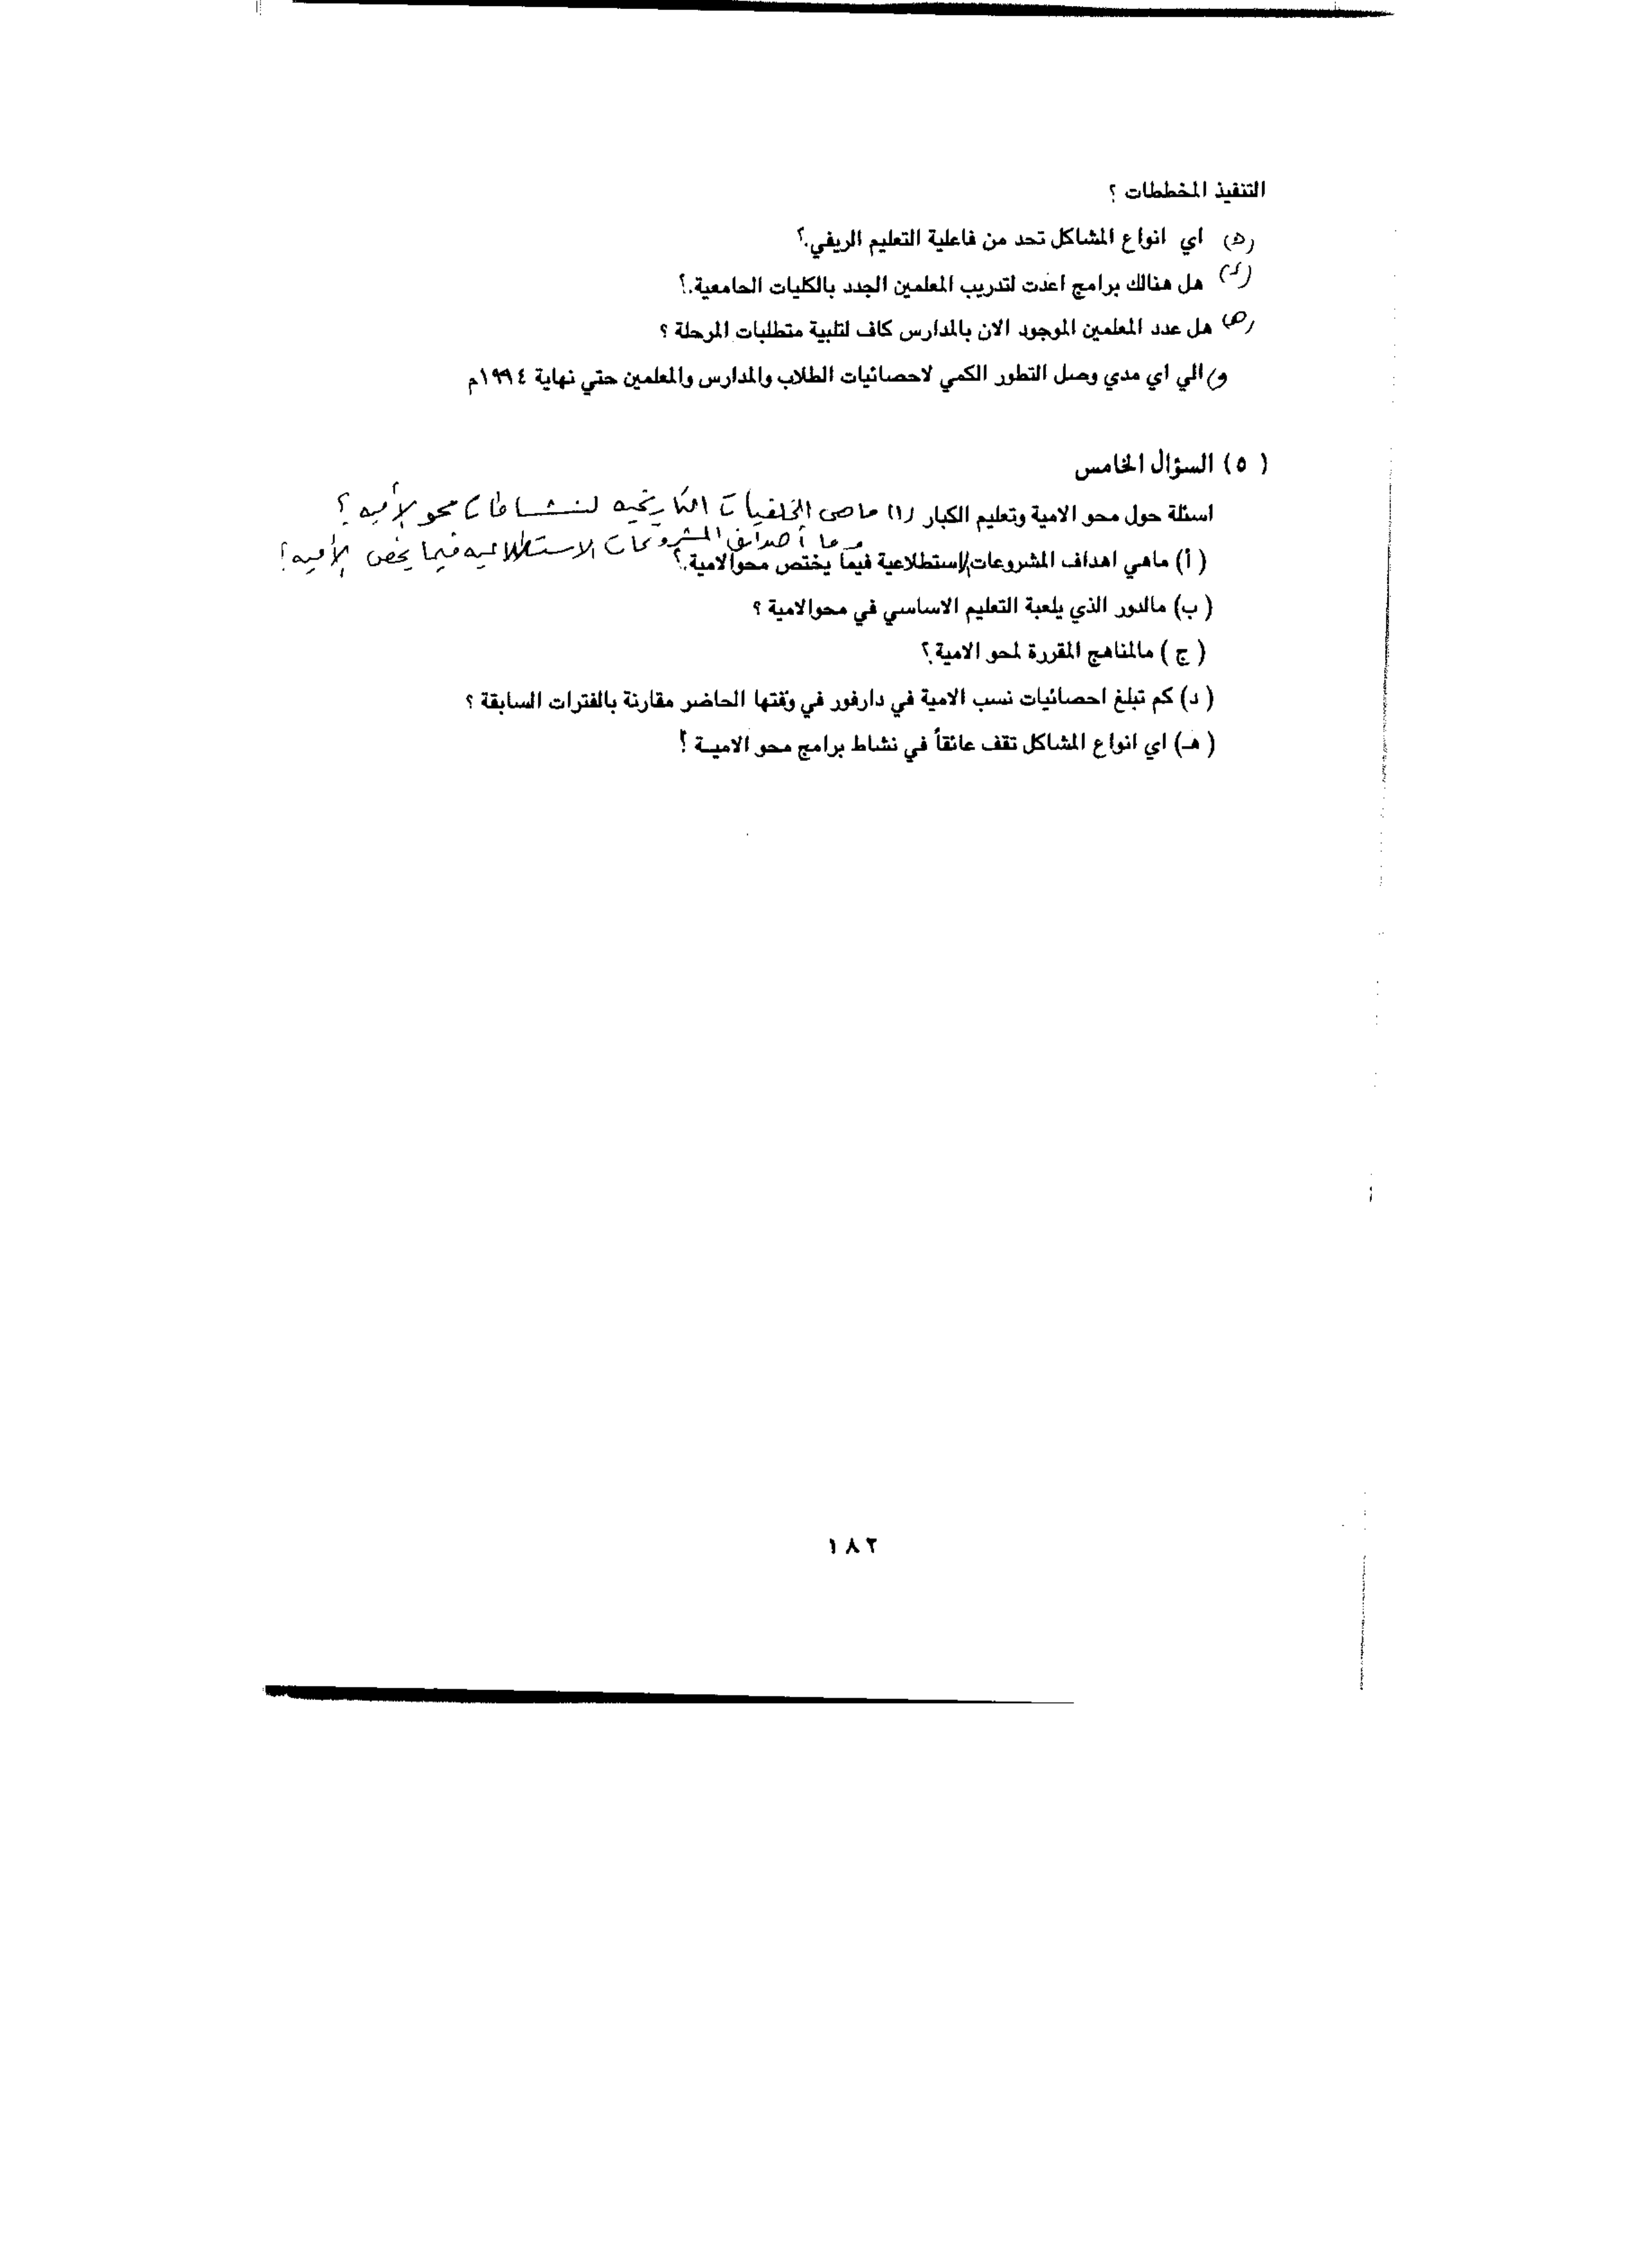 التنفيذ المخططات ؟
(ج) اي انواع المشاكل تحد من فاعلية التعليم الريفي.؟
(د) هل هنالك برامج اعدت لتدريب المعلمين الجدد بالكليات الجامعية.؟
(هـ) هل عدد المعلمين الموجود الان بالمدارس كاف لتلبية متطلبات المرحلة ؟
و) الي اي مدي وصل التطور الكمي لاحصائيات الطلاب والمدارس والمعلمين حتي نهاية ١٩٩٤م
( ٥ ) السؤال الخامس
اسئلة حول محو الامية وتعليم الكبار (١) ماهى الخلفيات التاريخيه لنشاطات محو الأميه ؟
وما أهداف المشروعات الاستطلاعيه فيما يخص الأميه؟
( أ ) ماهي اهداف المشروعات الإستطلاعية فيما يختص محوالامية.؟
( ب) مالدور الذي يلعبة التعليم الاساسي في محوالامية ؟
( ج ) مالمناهج المقررة لمحو الامية؟
( د) كم تبلغ احصائيات نسب الامية في دارفور في وقتها الحاضر مقارنة بالفترات السابقة ؟
( هـ) اي انواع المشاكل تقف عائقاً في نشاط برامج محو الاميـة !
١٨٢